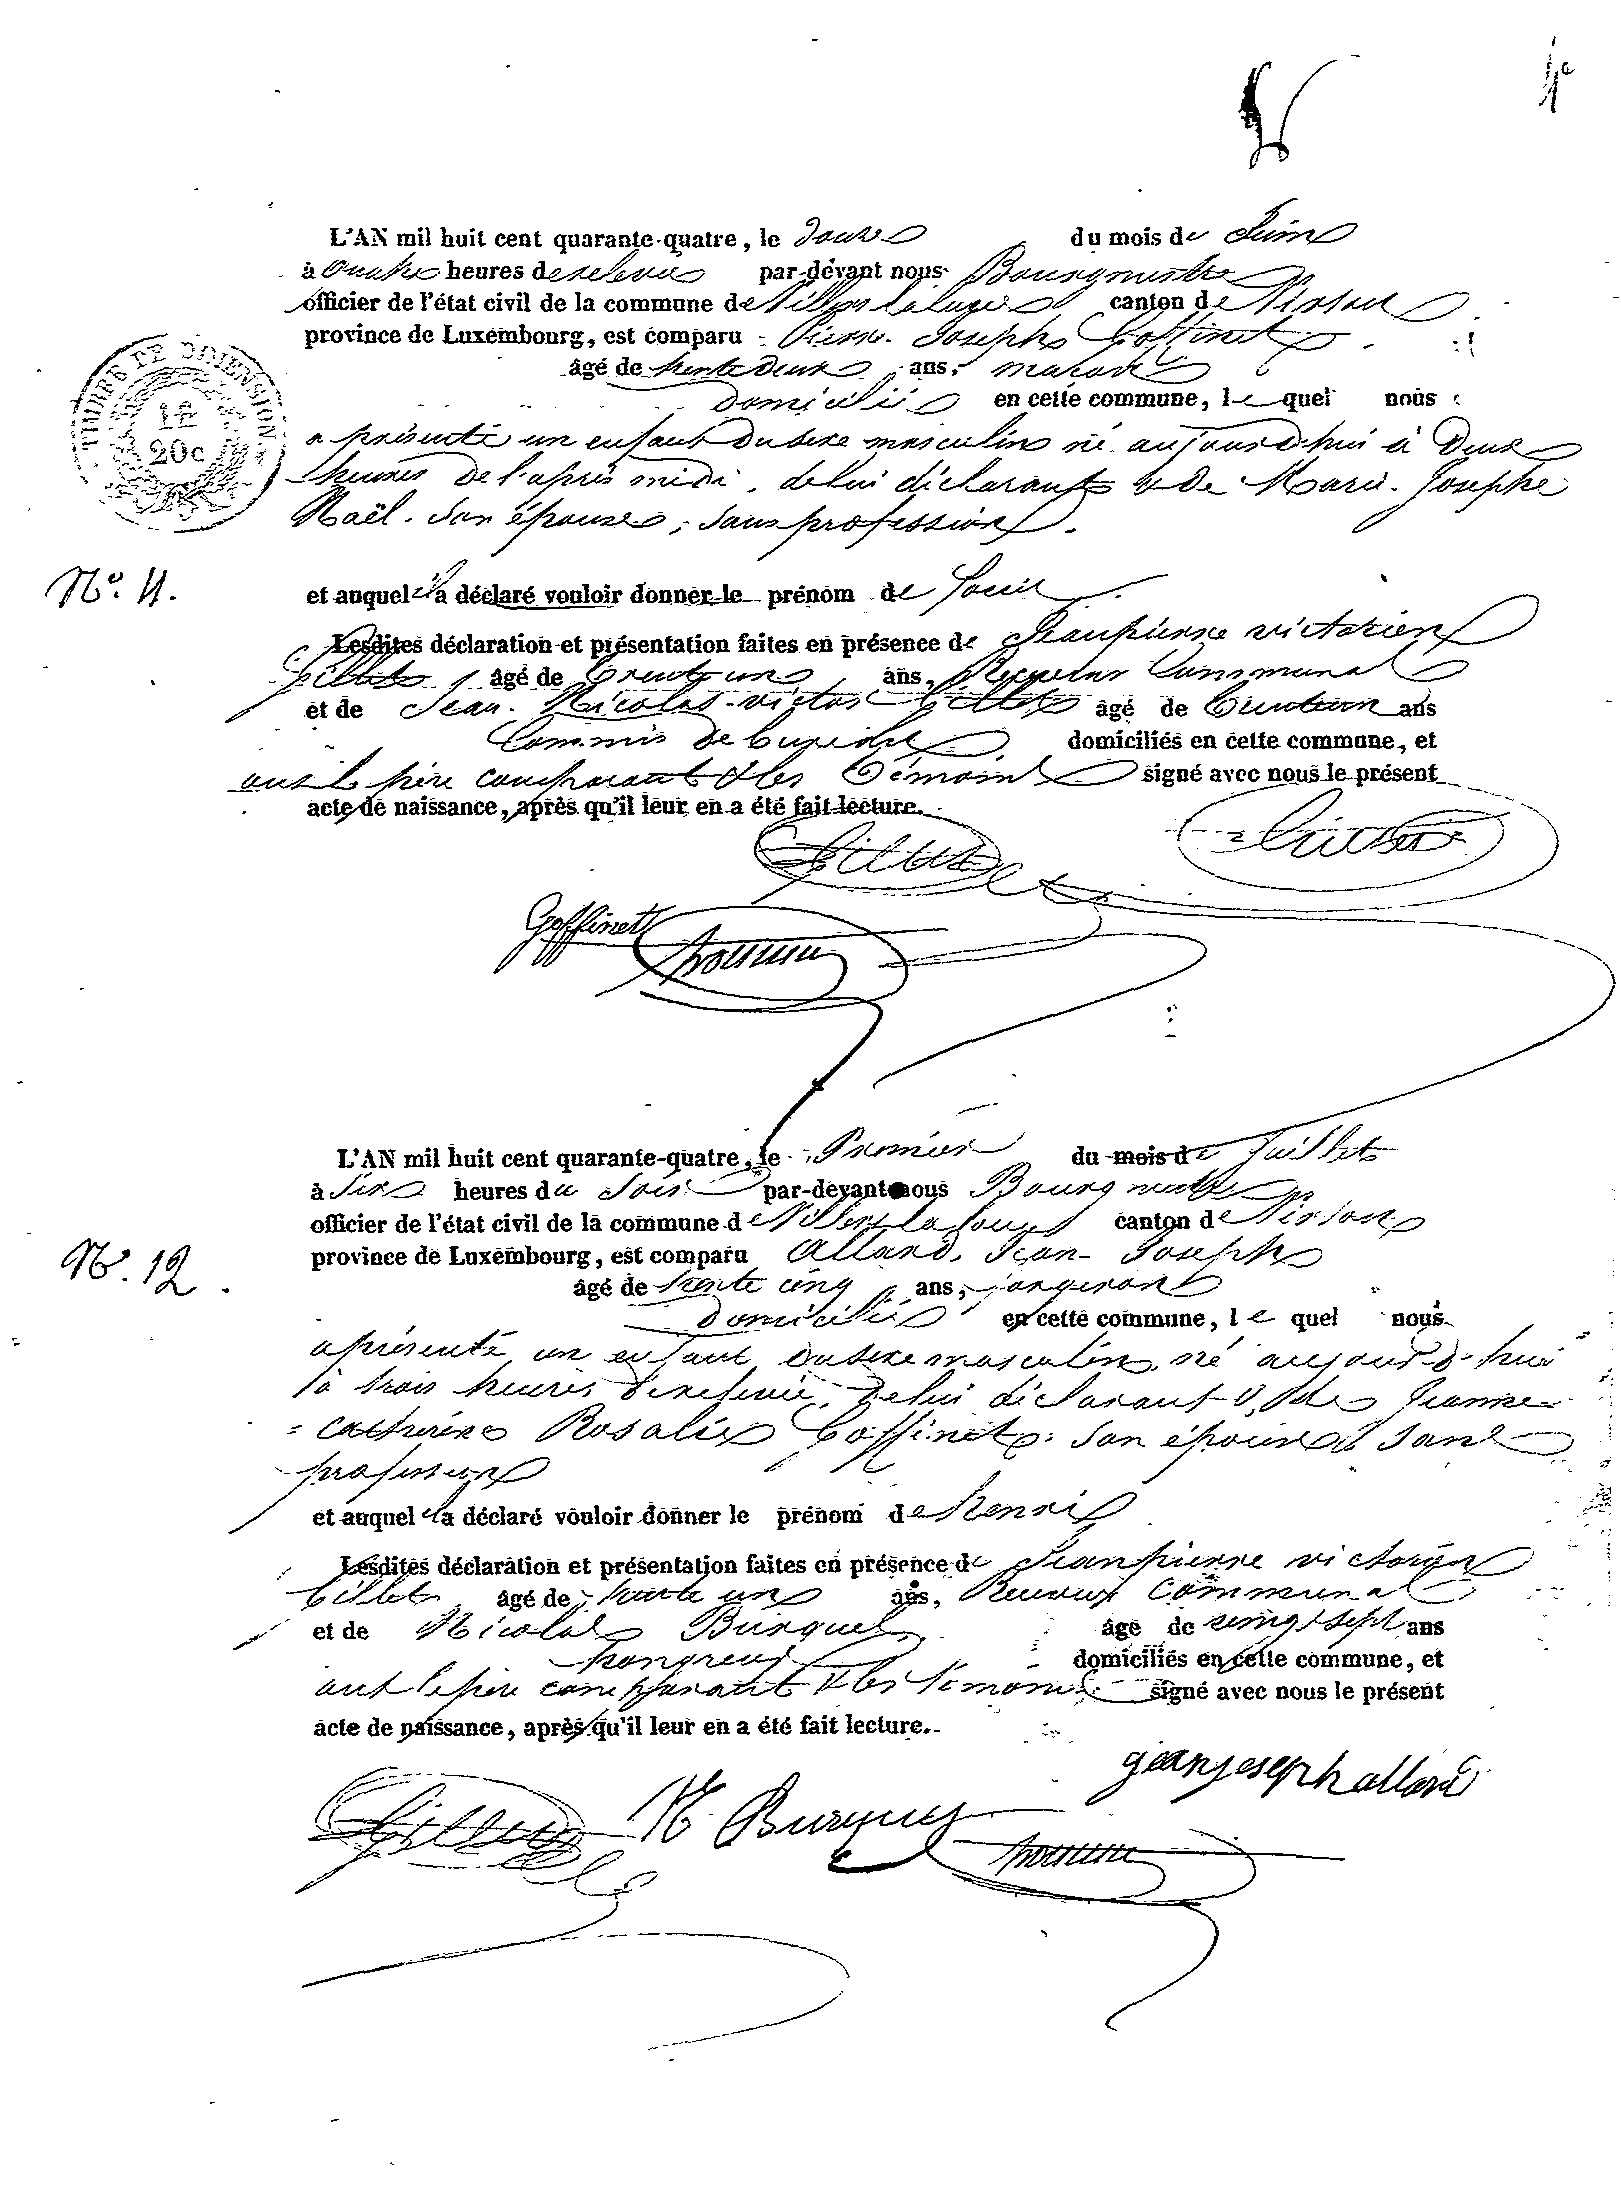 4e
L'AN mil huit cent quarante-quatre, le douze du mois de Juin
à quatre heures de relevée par-devant nous Bourgmestre
officier de l'état civil de la commune de Villers la loue canton de Virton
province de Luxembourg, est comparu Pierre Joseph Goffinet
âgé de trente deux ans,
domicilié en cette commune, le quel nous
a présenté un enfant du sexe masculin né aujourd'hui à Deux
heures de l'après midi, de lui déclarant & de Marie Josephe
Noël son épouse, sans profession.
No. 11.
et auquel il a déclaré vouloir donner le prénom de Louis
Lesdites déclaration et présentation faites en présence de Jeanpierre victorien
Gillet, âgé de trente un ans, Receveur Communal
et de Jean Nicolas victor Gillet âgé de ans
Commis de domiciliés en cette commune, et
ont le père comparant & les témoins signé avec nous le présent
acte de naissance, après qu'il leur en a été fait lecture.
Gillet
Goffinet
TIMBRE DE DIMENSION
20c
L'AN mil huit cent quarante-quatre, le Premier du mois de Juillet
à Six heures du Soir par-devant nous Bourgmestre
officier de l'état civil de la commune de Villers la loue canton de Virton
province de Luxembourg, est comparu Allard, Jean Joseph
No. 12.
âgé de trente cinq ans, forgeron
domicilié en cette commune, le quel nous
a présenté un enfant du sexe masculin né aujourd'hui
à trois heures de relevée, de lui déclarant & de Jeanne
Catherine Rosalie Goffinet son épouse sans
profession
et auquel il a déclaré vouloir donner le prénom de henri
Lesdites déclaration et présentation faites en présence de Jeanpierre victorien
Gillet âgé de trente un ans, Receveur Communal
et de Nicolas Burquel âgé de vingt sept ans
hongreur domiciliés en cette commune, et
ont le père comparant & les témoins signé avec nous le présent
acte de naissance, après qu'il leur en a été fait lecture.
jeanjoseph allard
Gillet N. Burquel